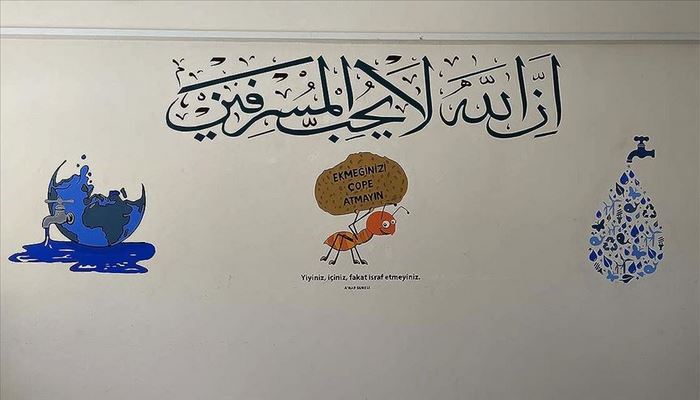 إن الله لا يحب المسرفين
EKMEĞİNİZİ
ÇÖPE
ATMAYIN
Yiyiniz, içiniz, fakat israf etmeyiniz.
A'RAF SURESİ